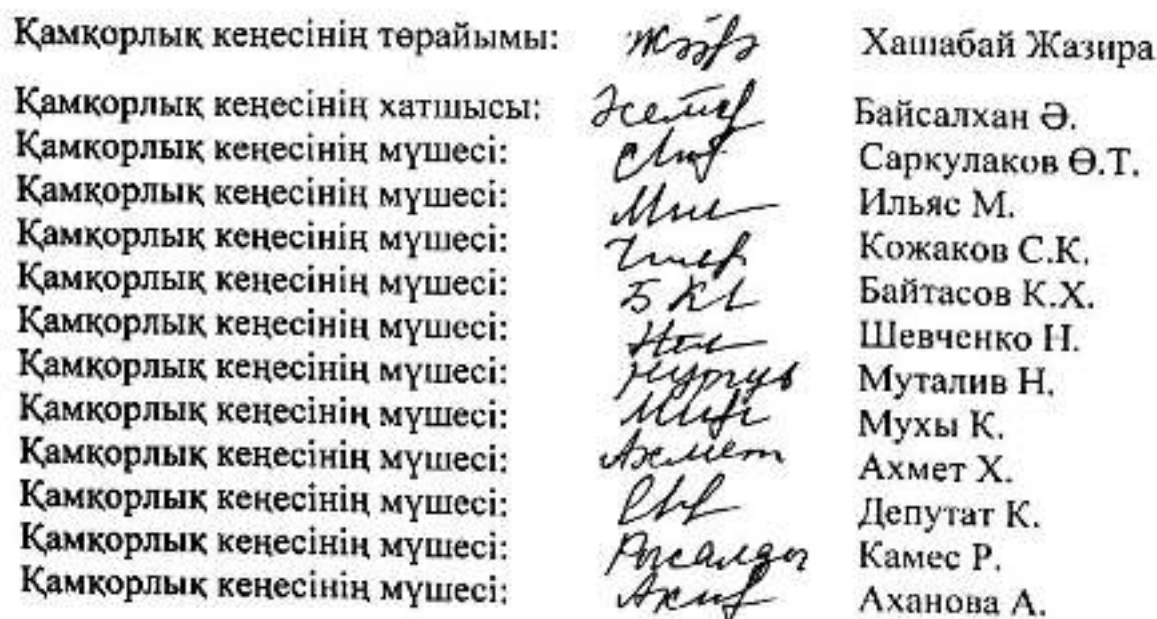 Қамқорлық кеңесінің төрайымы: Хашабай Жазира
Қамқорлық кеңесінің хатшысы: Байсалхан Ә.
Қамқорлық кеңесінің мүшесі: Саркулаков Ө.Т.
Қамқорлық кеңесінің мүшесі: Ильяс М.
Қамқорлық кеңесінің мүшесі: Кожаков С.К.
Қамқорлық кеңесінің мүшесі: Байтасов К.Х.
Қамқорлық кеңесінің мүшесі: Шевченко Н.
Қамқорлық кеңесінің мүшесі: Муталив Н.
Қамқорлық кеңесінің мүшесі: Мухы К.
Қамқорлық кеңесінің мүшесі: Ахмет Х.
Қамқорлық кеңесінің мүшесі: Депутат К.
Қамқорлық кеңесінің мүшесі: Камес Р.
Қамқорлық кеңесінің мүшесі: Аханова А.